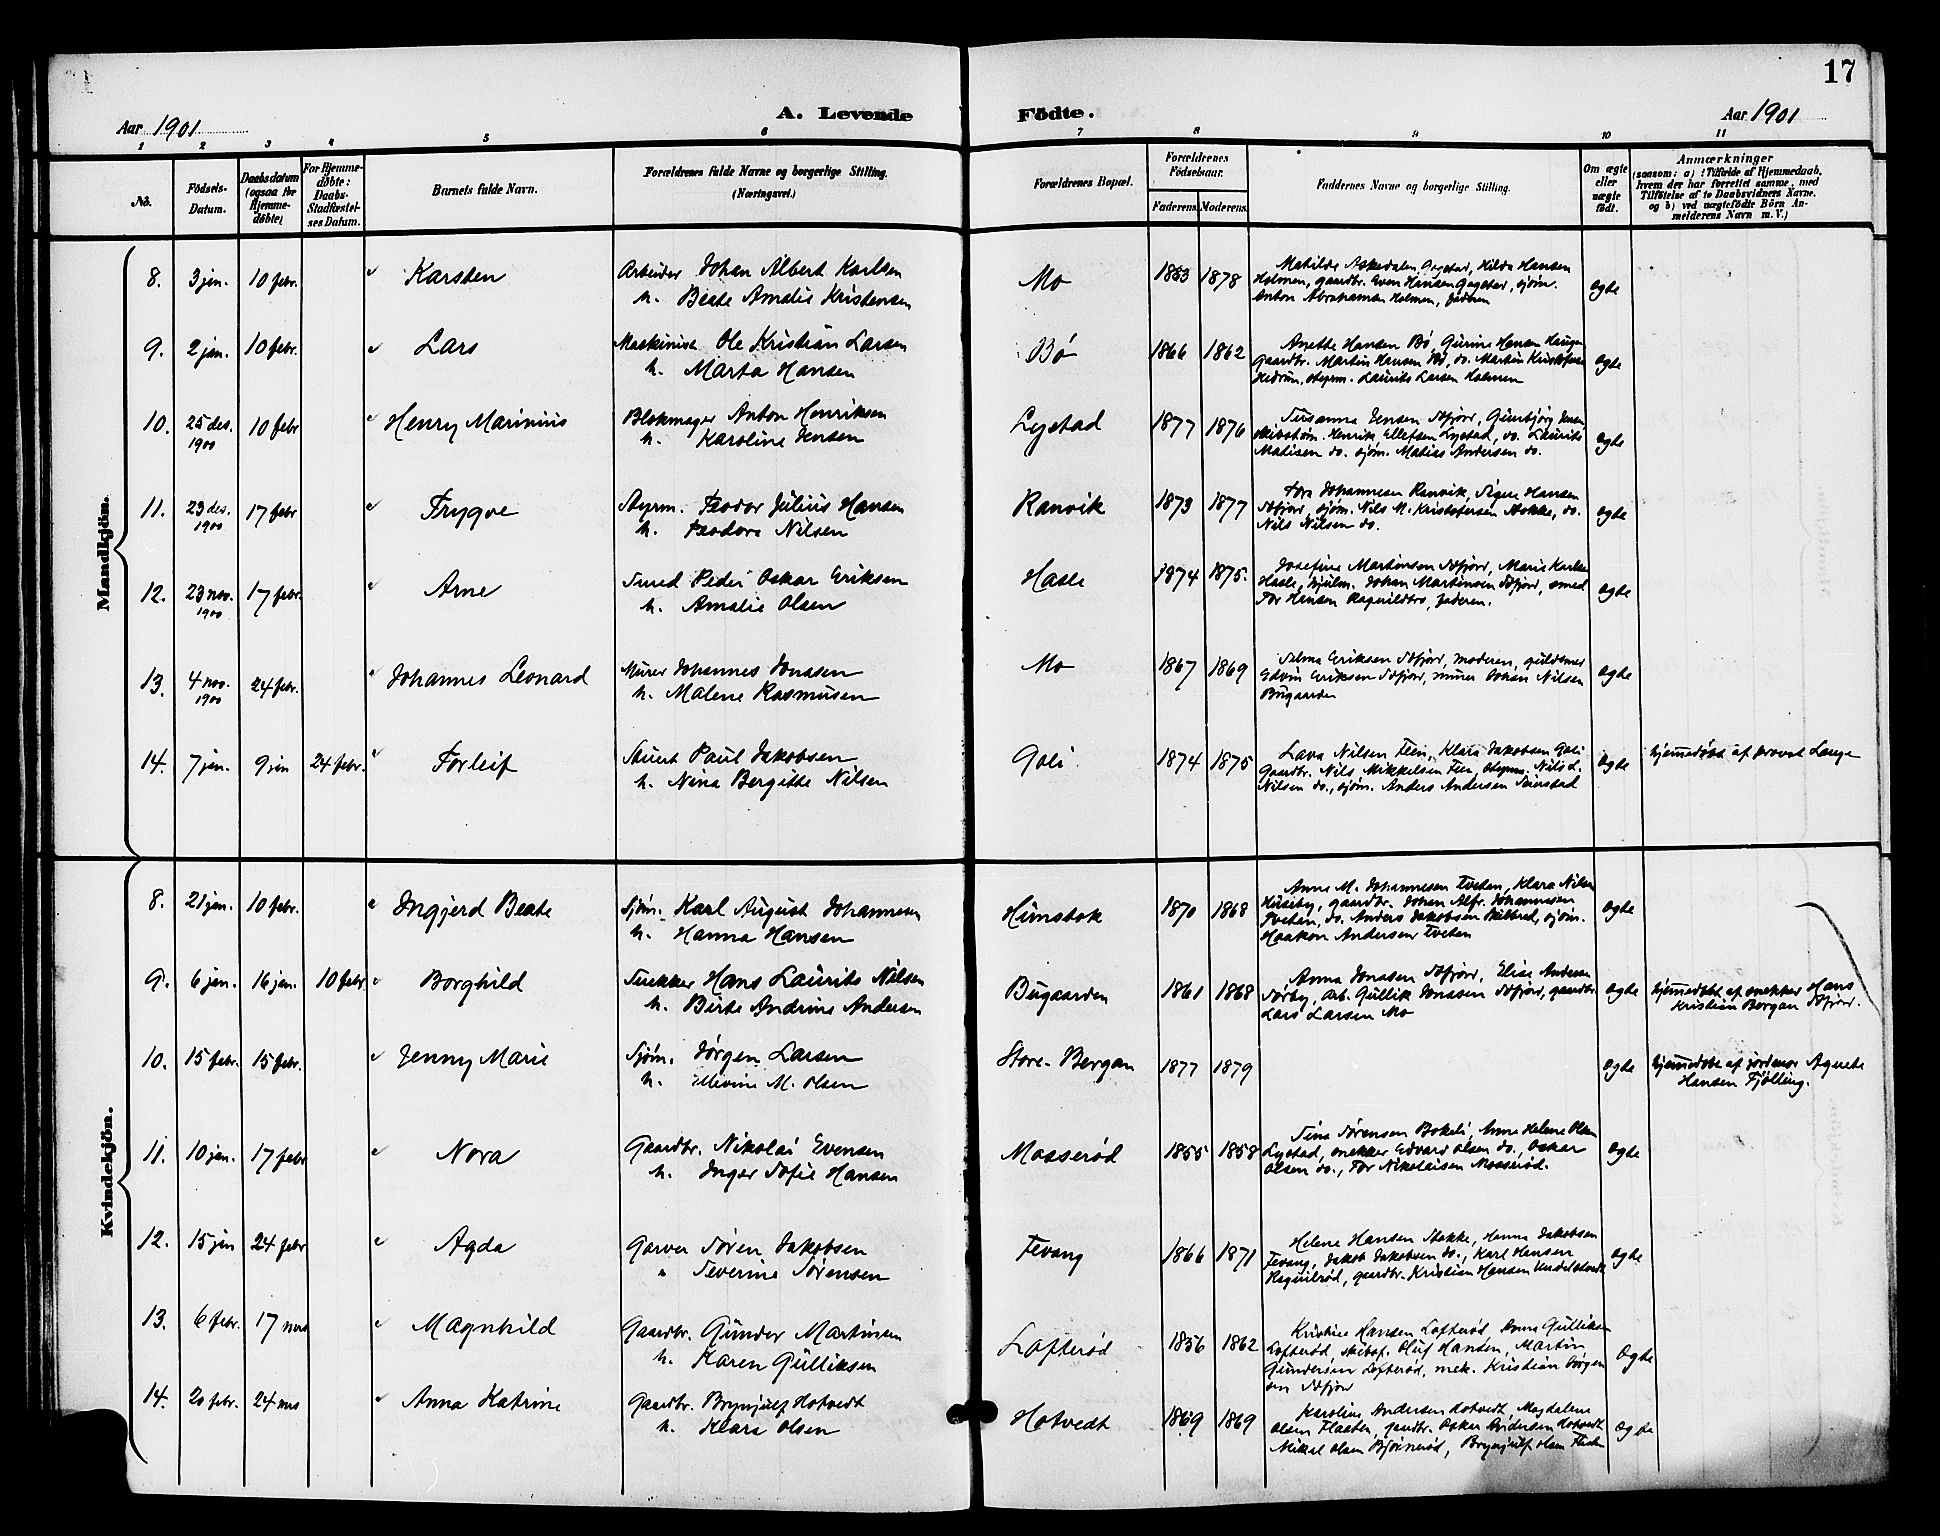 17
Aar 1901
A. Levende Födte.
Aar 1901
1 2 3 4 5 6 7 8 9 10 11
No.
Födsels-Datum.
Daabsdatum (ogsaa for Hjemme-döbte)
For Hjemme-döbte: Daabs-Stadfæstel-ses Datum.
Barnets fulde Navn.
Forældrenes fulde Navne og borgerlige Stilling.
(Næringsvei.)
Forældrenes Bopæl.
Forældrenes Födselsaar.
Faderens. Moderens.
Faddernes Navne og borgerlige Stilling.
Om ægte eller uægte födt.
Anmærkninger
(saasom: a) i Tilfælde af Hjemmedaab,
hvem der har forrettet samme, med
Tilföielse af to Daabsvidners Navne.
og b) ved uægtefödte Börn An-
melderens Navn m. V.)
Mandkjön.
8. 3 jan. 10 febr. Karsten Arbeider Johan Albert Karlsen Mo 1853 1878 Matilde Askedalen Gogstad, Hilda Hansen
h. Beate Amalie Kristensen Holmen, gaardbr. Even Hansen Gogstad, sjøm.
Anton Abrahamsen Holmen, faderen ægte
9. 2 jan. 10 febr. Lars Maskinist Ole Kristian Larsen Bø 1866 1862 Anette Hansen Bø, Gurine Hansen Haugen
h. Marta Hansen gaardbr. Martin Hansen Bø, do. Martin Kristofersen
Hedrum, styrm. Laurits Larsen Holmen ægte
10. 25 des. 1900 10 febr Henry Marinius Blokmager Anton Henriksen Lystad 1877 1876 Susanna Jensen Sdfjord, Gunbjørg Jensen
h. Karoline Jensen skibstøm. Henrik Ellefsen Lystad, do. Laurits
Matisen do. sjøm. Matias Andersen do. ægte
11. 23 des. 1900 17 febr Trygve Styrm. Teodor Julius Hansen Ranvik 1873 1877 Tora Johannesen Ranvik, Signe Hansen
h. Teodora Nilsen Sdfjord, sjøm. Nils M. Kristofersen Stokke, do.
Nils Nilsen do. ægte
12. 23 nov. 1900 17 febr. Arne Smed Peder Oskar Eriksen Hasle 1874 1875. Josefine Martinsen Sdfjord, Marie Karlsen
h. Amalie Olsen Hasle, hjulm. Johan Martinsen Sdfjord, smed
Tor Hansen Ragnildbro, faderen. ægte
13. 4 nov. 1900 24 febr. Johannes Leonard Murer Johannes Jonasen Mo 1867 1869 Selma Eriksen Sdfjord, moderen, guldsmed
h. Malene Rasmusen Edvin Eriksen Sdfjord, murer Johan Nilsen
Bugaarden ægte
14. 7 jan. 9 jan 24 febr. Torleif Stuert Paul Jakobsen Goli 1874 1875 Lava Nilsen Fein, Klara Jakobsen Goli
h. Nina Bergitte Nilsen Gaardbr. Nils Mikkelsen Fein, styrm. Nils L.
Nilsen do., sjøm. Anders Andersen Feierstad ægte hjemmedøbt af provst Lange
Kvindekjön.
8. 21 jan. 10 febr. Ingjerd Beate Sjøm. Karl August Johannesen Himstok 1870 1868 Anna M. Johannesen Tveten, Klara Nilsen
h. Hanna Hansen Huseby, gaardbr. Johan Alfr. Johannesen
Tveten, do. Anders Jakobsen Skilbred, sjøm.
Haakon Andersen Tveten ægte
9. 6 jan. 16 jan. 10 febr Borghild Snekker Hans Laurits Nilsen Bugaarden 1861 1868 Anna Jonasen Sdfjord, Elise Andersen
h. Birte Andrine Andersen Sørby, Arb. Gullik Jonasen Sdfjord, gaardbr.
Lars Larsen Mo ægte hjemmedøbt af snekker Hans
Kristian Borgan Sdfjord.
10. 15 febr. 15 febr. Jenny Marie Sjøm. Jørgen Larsen Store-Bergan 1877 1879 ægte hjemmedøbt af jordmor Agnete
h. Mevine M. Olsen Hansen Fjølling.
11. 10 jan. 17 febr Nora Gaardbr. Nikolai Evensen Mosserød 1855 1858 Tina Sørensen Bokeli, Anne Helene Olsen
h. Inger Sofie Hansen Lystad, snekker Edvard Olsen do., Oskar
Olsen do., Tor Nikolaisen Mosserød. ægte
12. 15 jan 24 febr Agda Garver Søren Jakobsen Fevang 1866 1871 Helene Hansen Stokke, Hanna Jakobsen
" Severine Sørensen Fevang, Jakob Jakobsen do., Karl Hansen
Ragnilrød, gaardbr. Kristian Hansen Undelstvedt ægte
13. 6 febr. 17 mars Magnhild Gaardbr. Gunder Martinsen Lofterød 1856 1862 Kristine Hansen Lofterød, Anna Gulliksen
h. Karen Gulliksen Lofterød skibsf. Oluf Hansen, Martin
Gundersen Lofterød, mek. Kristian Jørgen
sen Sdfjord ægte
14. 20 febr. 24 mrs Anna Katrine Gaardbr. Brynjulf Hotvedt Hotvedt 1869 1869 Karoline Andersen Hotvedt, Magdalene
h. Klara Olsen Olsen Flaaten, gaardbr. Oskar Andersen Hotvedt
Mikal Olsen Bjørnerød, Brynjulf Olsen Flaaten ægte